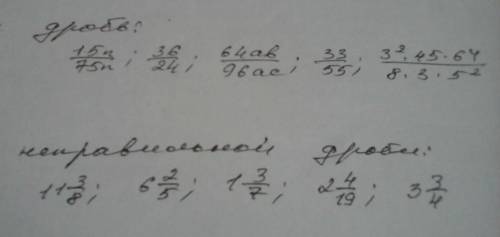 дробь:
15n/75n; 36/24; 64ab/96ac; 33/55; 3²·45·64/8·3·5²
неправильной дроби:
11 3/8; 6 2/5; 1 3/7; 2 4/19; 3 3/4